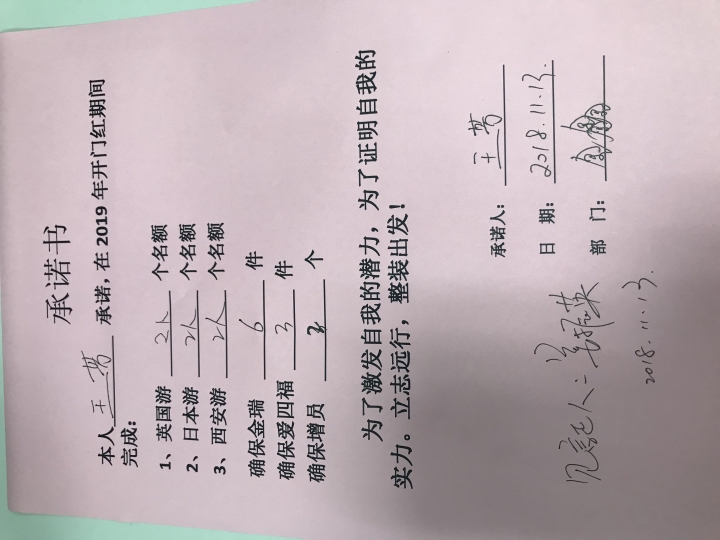 承诺书
本人 王芳 承诺，在 2019 年开门红期间
完成：
1、英国游 2人 个名额
2、日本游 2人 个名额
3、西安游 2人 个名额
确保金瑞 6 件
确保爱四福 3 件
确保增员 3 个
为了激发自我的潜力，为了证明自我的
实力。立志远行，整装出发！
承诺人： 王芳
日 期： 2018.11.13.
部 门：
见证人：
2018.11.13.